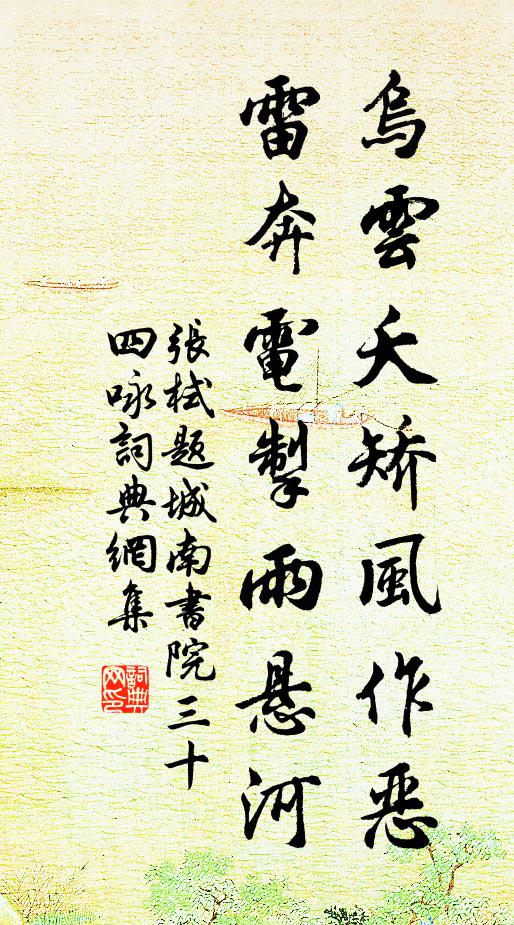 烏雲夭矯風作惡
雷奔電掣雨懸河
張栻題城南書院三十
四咏詞典網集
詞典
网印